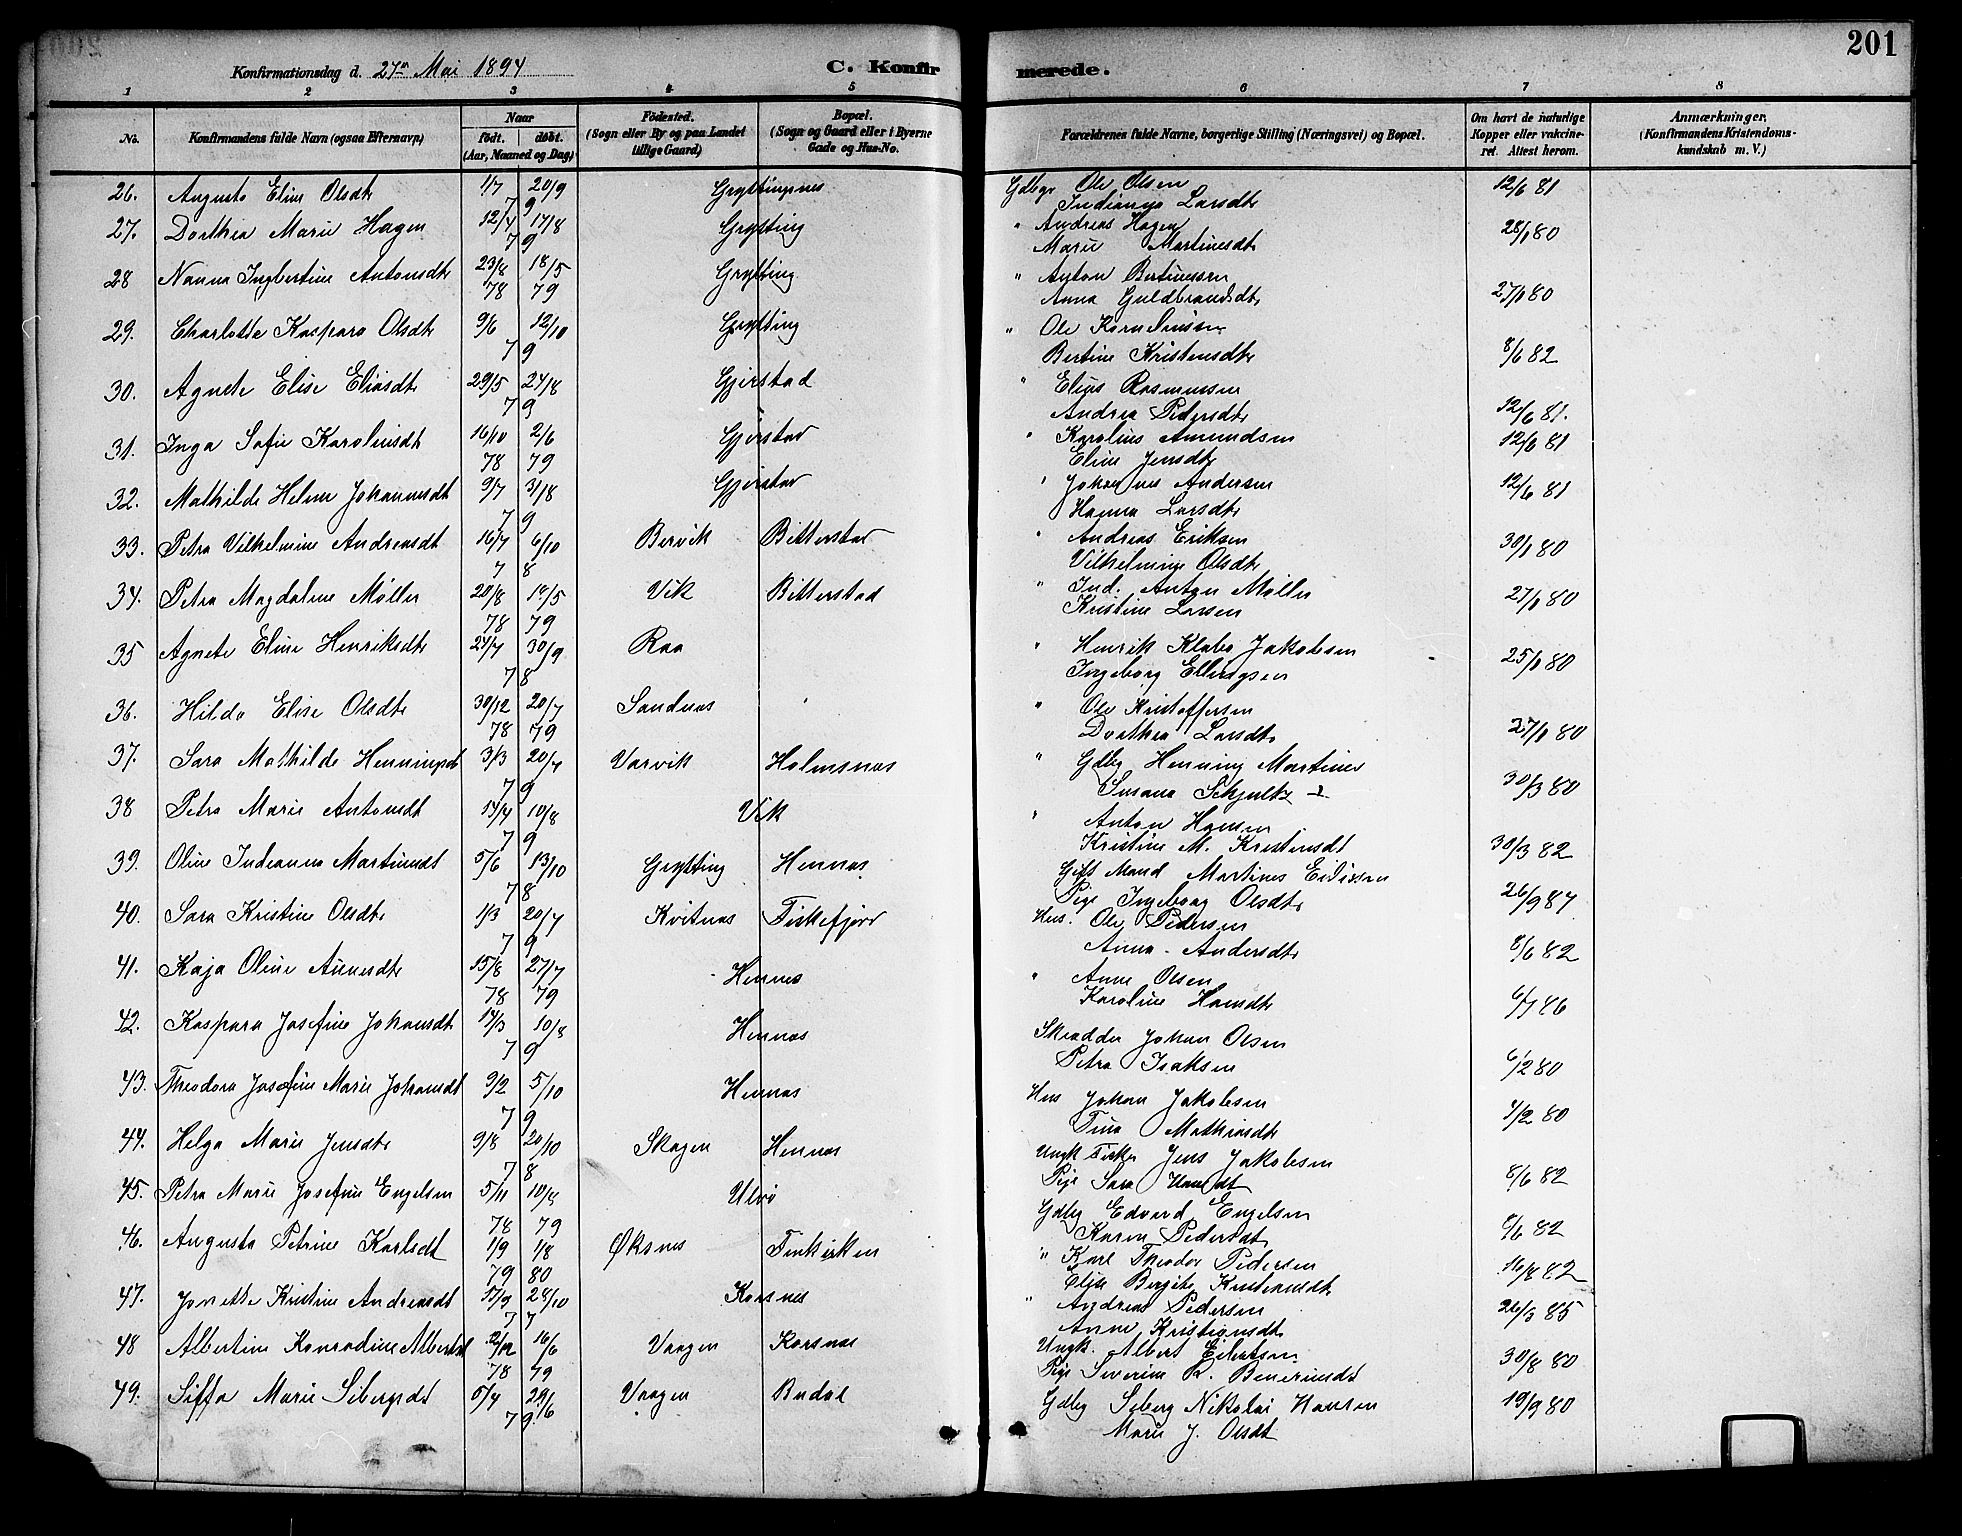 201
Konfirmationsdag d. 27de Mai 1894
C. Konfirmerede.
1 2 3 4 5 6 7 8
No.
Konfirmandens fulde Navn (ogsaa Efternavn)
Naar født. døbt. (Aar, Maaned og Dag)
Fødested. (Sogn eller By og paa Landet tillige Gaard)
Bopæl. (Sogn og Gaard eller i Byerne Gade og Hus-No.
Forældrenes fulde Navne, borgerlige Stilling (Næringsvei) og Bopæl.
Om havt de naturlige Kopper eller vakcineret. Attest herom.
Anmærkninger. (Konfirmandens Kristendomskundskab m. V.)
26. Augusta Eline Olsdt 1/7 20/9 79 Gryttingnes Gdbgr Ole Olsen 12/6 81
Indianna Larsdt
27. Dorthea Marie Hagen 12/4 17/8 79 Grytting " Andreas Hagen 28/1 80
Marie Martinesdt
28 Nanna Ingbertine Antonsdt 23/8 78 18/5 79 Grytting " Anton Bertinussen 27/1 80
Anna Guldbrandsdt
29. Charlotte Kaspara Olsdt 9/6 12/10 79 Grytting " Ole Korneliussen 8/6 82
Bertine Kristensdt
30. Agnete Elise Eliasdt 29/5 24/8 79 Gjerstad " Elias Rasmussen 12/6 81.
Andrea Pedersdt
31. Inga Sofie Karoliusdt 16/10 78 2/6 79 Gjerstad " Karolius Amundsen 12/6 81
Eline Jensdt
32. Mathilde Helene Johannesdt 9/7 31/8 79 Gjerstad " Johannes Andersen 12/6 81
Hanna Larsdt
33. Petra Vilhelmine Andreasdt 16/7 6/10 78 Bervik Bitterstad " Andreas Eriksen 30/1 80
Vilhelmine Olsdt
34. Petra Magdalene Møller 20/8 78 18/5 79 Vik Bitterstad " Ind. Anton Møller 27/1 80
Kristine Larsen
35 Agnete Eline Henriksdt 24/7 30/9 78 Raa " Henrik Klabo Jakobsen 25/1 80
Ingeborg Ellingsen
36. Hilda Elise Olsdt 30/12 78 20/7 79 Sandnes " Ole Kristoffersen 27/1 80
Dorthea Larsdt
37. Sara Mathilde Henningsdt 3/3 20/7 79 Varvik Holmsnes " Gdbg Henning Martines 30/3 80
Susana Schjultz
38 Petra Marie Antonsdt 14/4 10/8 79 Vik " Anton Hansen 30/3 82
Kristine M. Kristensdt
39. Oline Indianna Martinesdt 5/6 13/10 78 Grytting Hennes Gift Mand Martines 26/9 87
Pige Ingeborg Olsdt
40. Sara Kristine Olsdt 1/3 20/7 79 Kvitnes Fiskefjord Hus. Ole Pedersen 8/6 82
Anna Andersdt
41. Kaja Oline Aunesdt 15/8 78 27/7 79 Hennes " Anne Olsen 6/7 86
Karoline Hansdt
42. Kaspara Josefine Johansdt 14/3 10/8 79 Hennes Skrædder Johan Olsen 6/2 80
Petra Isaksen
43. Theodora Josefine Marie Johansdt 9/2 5/10 79 Hennes Hus Johan Jakobsen 4/2 80
Tina Mathiasdt
44. Helga Marie Jensdt 9/8 20/10 78 Skagen Hennes Ungk Fisker Jens Jakobsen 8/6 82
Pige Sara Hansdt
45. Petra Marie Josefine Engelsen 5/11 78 10/8 79 Ulvø Gdbg Edvard Engelsen 8/6 82
Karen Pedersdt
46. Augusta Petrine Karlsdt 1/9 79 1/8 80 Øksnes Finkirken " Karl Theodor Pedersen 16/8 82
Elise Bergite Kristiansdt
47. Jonette Kristine Andreasdt 17/9 28/10 77 Korsnes " Andreas Pedersen 26/3 85
Anne Kristiansdt
48 Albertine Konradine Albertsdt 12/12 78 16/6 79 Vaagen Korsnes Ungk. Albert Eilertsen 30/8 80
Pige Severine R.
49. Siffa Marie Sibergsdt 5/4 29/6 79. Vaagen Budal Gdbg Siberg Nikolai Hansen 19/9 80
Marie J. Olsdt